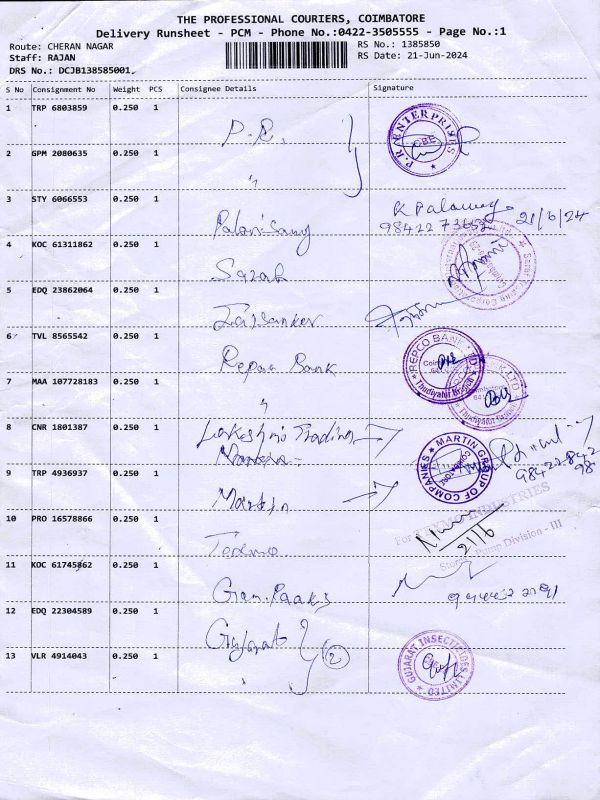 THE PROFESSIONAL COURIERS, COIMBATORE
Delivery Runsheet - PCM - Phone No.:0422-3505555 - Page No.:1
Route: CHERAN NAGAR
RS No.: 1385850
Staff: RAJAN
RS Date: 21-Jun-2024
DRS No.: DCJB138585001,
S No Consignment No Weight PCS Consignee Details Signature
1 TRP 6803859 0.250 1 P.R. P.R ENTERPRISES CBE
2 GPM 2080635 0.250 1 "
3 STY 6066553 0.250 1 Palanisamy 21/6/24
4 KOC 61311862 0.250 1 Sarah
5 EDQ 23862064 0.250 1
6 TVL 8565542 0.250 1 Repco Bank REPCO BANK Thudiyalur Branch
7 MAA 107728183 0.250 1 "
8 CNR 1801387 0.250 1 Lakshmi Trading
9 TRP 4936937 0.250 1 Martin MARTIN GROUP OF COMPANIES
10 PRO 16578866 0.250 1 INDUSTRIES
21/6 Pump Division - III
11 KOC 61745862 0.250 1
12 EDQ 22304589 0.250 1 Gujarat
13 VLR 4914043 0.250 1 2 GUJARAT INSECTICIDES LIMITED